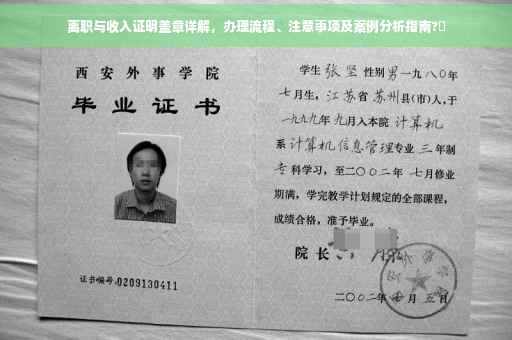 离职与收入证明盖章详解，办理流程、注意事项及案例分析指南?
西安外事学院
毕业证书
证书编号:0209130411
学生 张坚 性别 男 一九八〇年
七月生, 江苏省 苏州 县(市)人, 于
一九九九年 九月入本院 计算机
系 计算机信息管理 专业 三 年制
专 科学习, 至二〇〇二年 七月修业
期满, 学完教学计划规定的全部课程,
成绩合格, 准予毕业。
院长
二〇〇二年 七 月 五 日